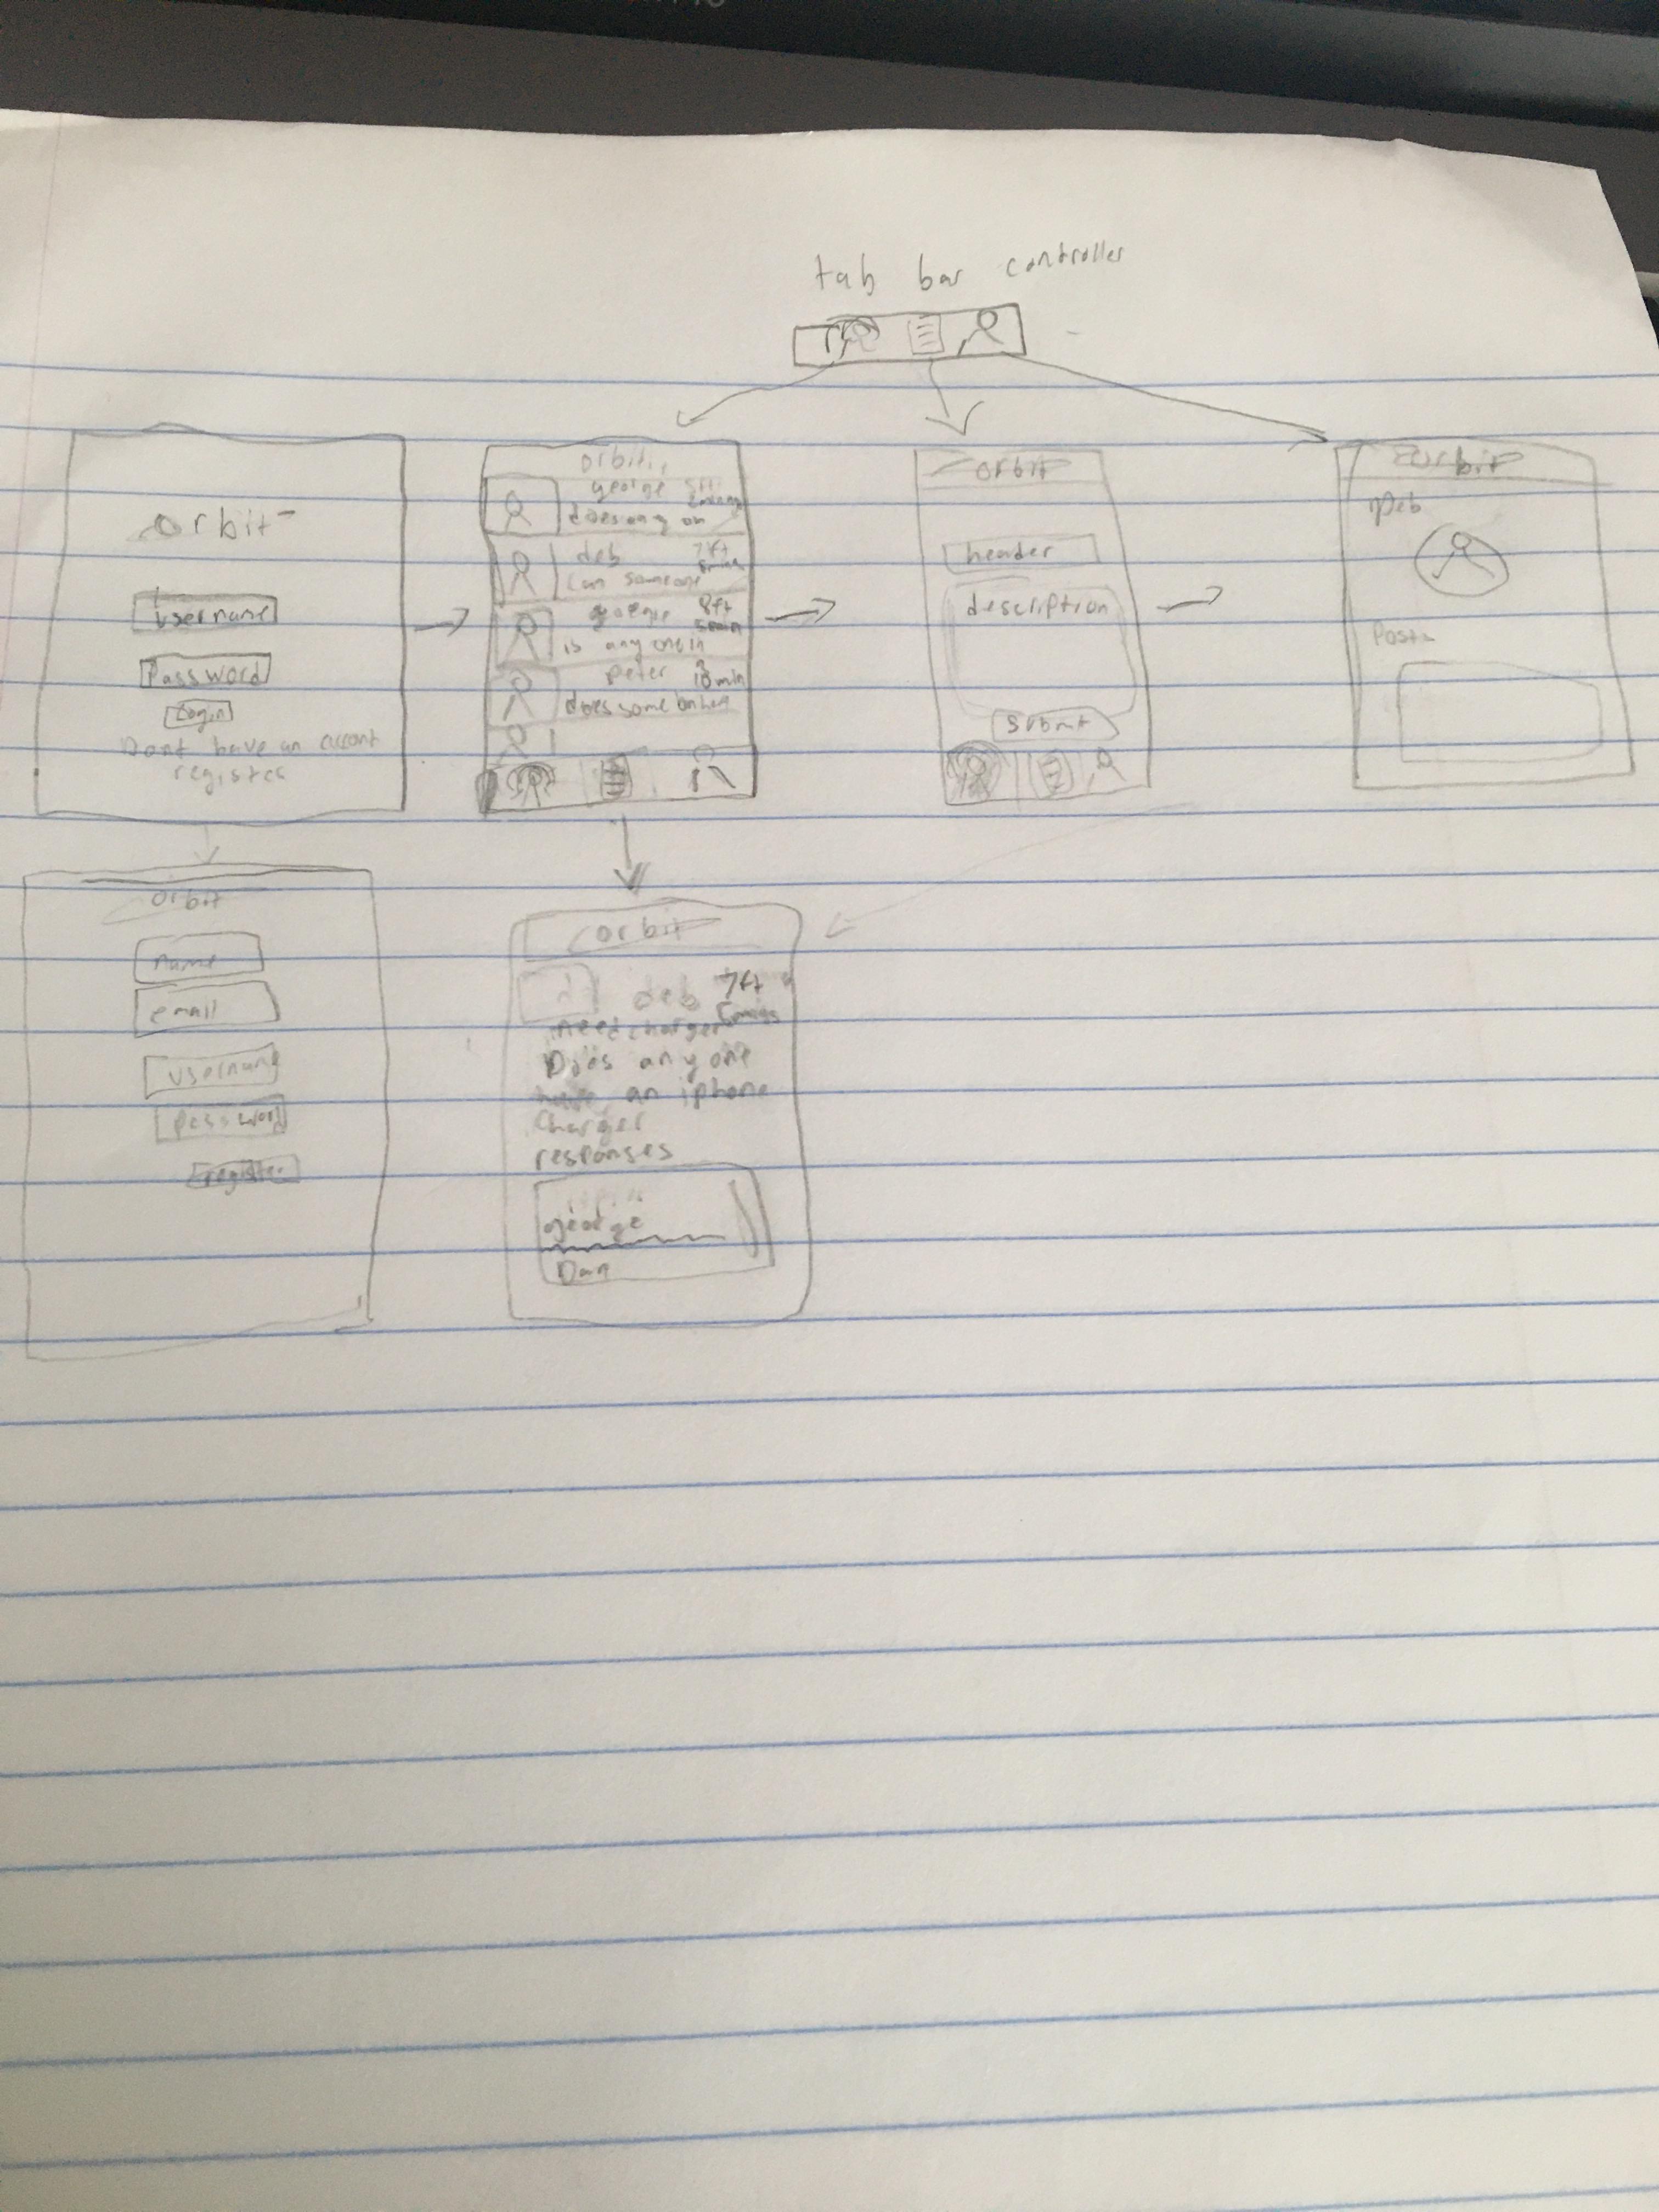 tab bar controller
orbit
username
password
login
Dont have an account
register
orbit
george 5ft
does any on
deb 7ft
can someone
george 8ft
5min
is any one in
peter
18min
does some on here
orbit
header
description
submit
orbit
Deb
Posts
orbit
name
email
username
password
register
orbit
deb 7ft
need charger
Does anyone
have an iphone
charger
responses
george
Dan